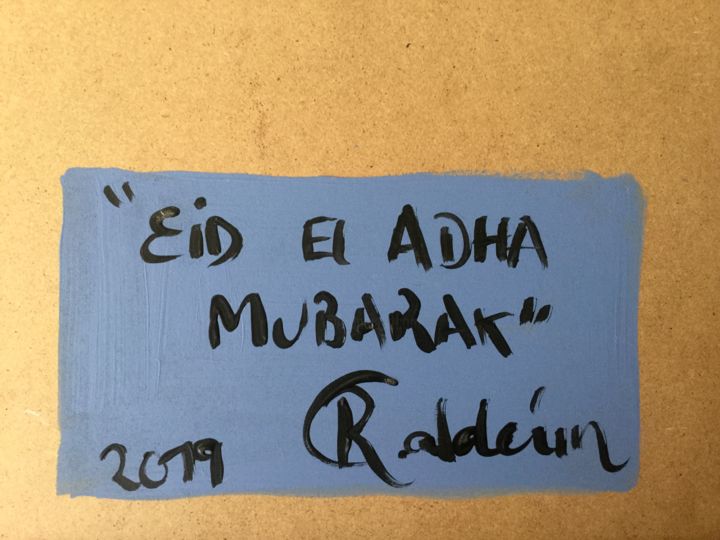 "EiD El ADHA
MUBARAK"
2019